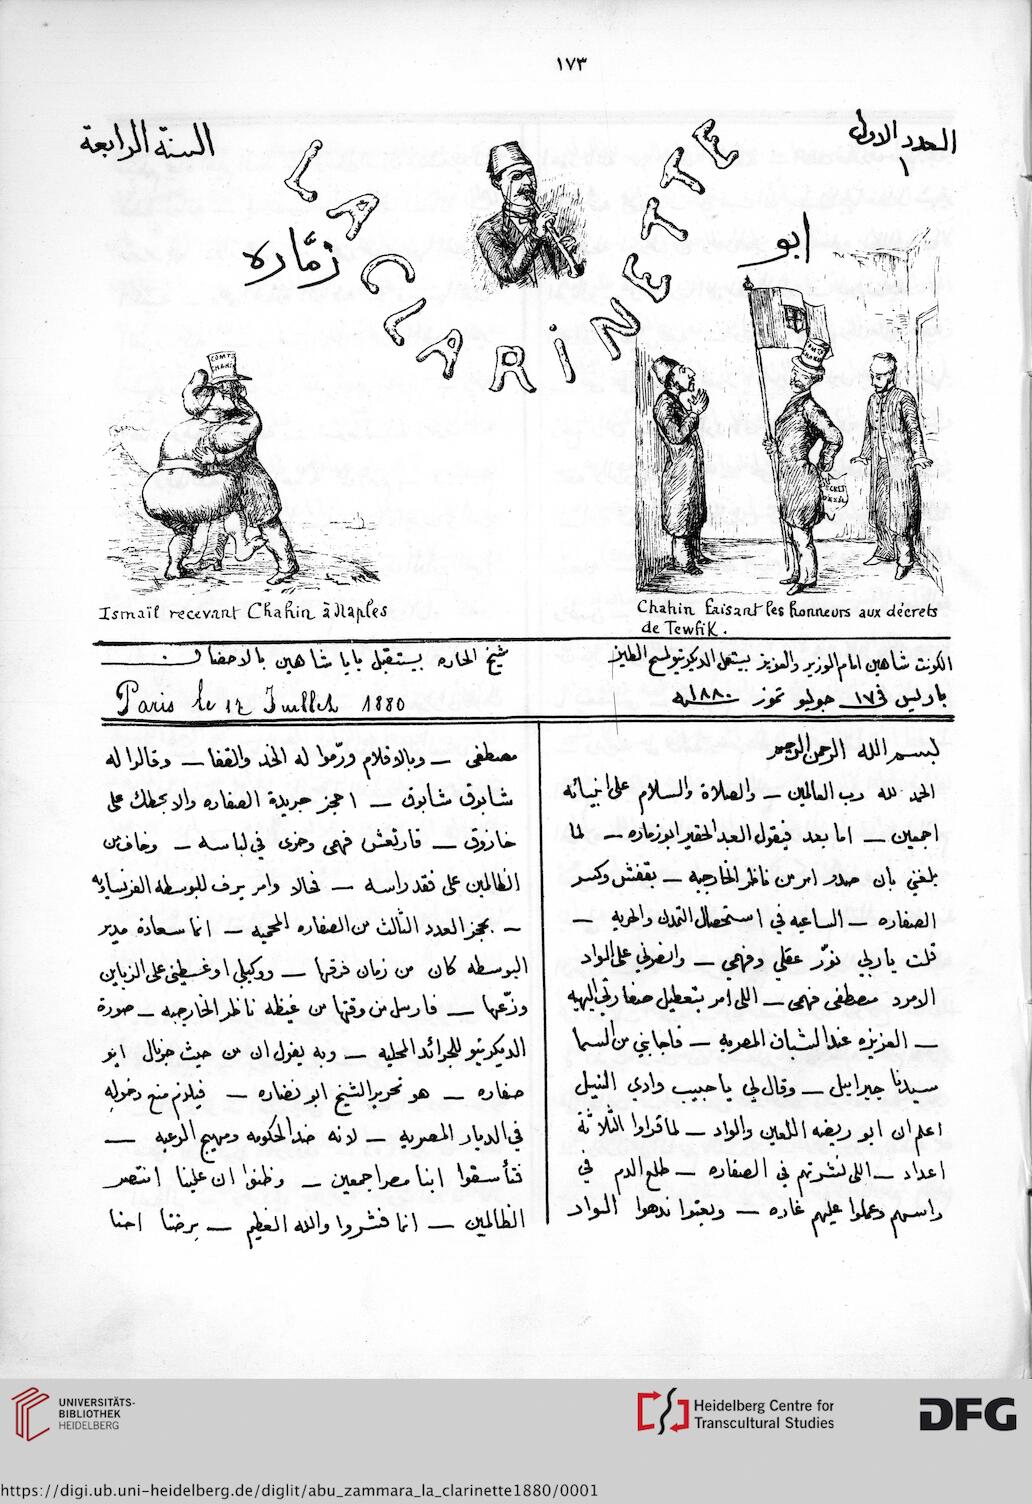 ١٧٣
العدد الاول
١
السنة الرابعة
LA CLARINETTE
ابو
زمّاره
COMTE
CHAHIN
DECRET
Ismaïl recevant Chahin à Naples
Chahin faisant les honneurs aux décrets
de Tewfik.
الكونت شاهين امام الوزير والعزيز يستعمل الديكريتو لمسح الطيز
باريس في ١٧ جوليو تموز ١٨٨٠ سنه
شيخ الحاره يستقبل بابا شاهين بالاحضان
Paris le 17 Juillet 1880
بسم الله الرحمن الرحيم
الحمد لله رب العالمين – والصلاة والسلام على انبيائه
اجمعين – اما بعد فيقول العبد الحقير ابو زماره – لما
بلغني بان صدر امر من ناظر الخارجيه – بقفش وكسر
الصفاره – الساعيه في استحصال التمدن والحريه –
قلت ياربي نوّر عقلي وفهمي – وانصرني على الواد
الامرد مصطفى فهمى – اللى امر بتعطيل صفارتي البهيه
– العزيزه عند الشبان المصريه – فاجابني من السما
سيدنا جبرابيل – وقال لي يا حبيب وادي النيل
اعلم ان ابو ريضه اللعين والواد – لما قراوا الثلاثة
اعداد – اللى نشرتهم في الصفاره – طلع الدم في
راسهم وعملوا عليهم غاره – وبعتوا ندهوا الواد
مصطفى – وبالاقلام ورّموا له الخد والقفا – وقالوا له
شابوق شابوق – احجز جريدة الصفاره والا نحطك على
خازوق – فارتعش فهمى وخرى في لباسه – وخاف من
الظالمين على فقد راسه – فحالا وامر يرف للبوسطه الفرنساويه
– بحجز العدد الثالث من الصفاره المحميه – انما سعادة مدير
البوسطه كان من زمان فرقها – ووكيلى اوغسطين على الزباين
وزّعها – فارسل من وقتها من غيظه ناظر الخارجيه – صورة
الديكريتو للجرائد المحليه – وبه يقول ان من حيث جرنال ابو
صفاره – هو تحرير الشيخ ابو نضاره – فيلزم منع دخوله
في الديار المصريه – لانه ضد الحكومه ومهيج الرعيه –
فتأسفوا ابنا مصر اجمعين – وظنوا ان علينا انتصر
الظالمين – انما فشروا والله العظيم – برضنا احنا
UNIVERSITÄTS-
BIBLIOTHEK
HEIDELBERG
Heidelberg Centre for
Transcultural Studies
DFG
https://digi.ub.uni-heidelberg.de/diglit/abu_zammara_la_clarinette1880/0001